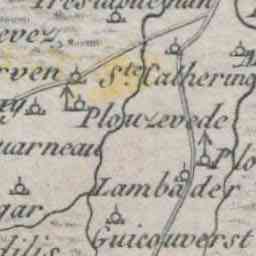 evez
rven
Ste Catherin
Plouzevede
uarneau
Plo
Lambader
gar
Guicouverst
dilis